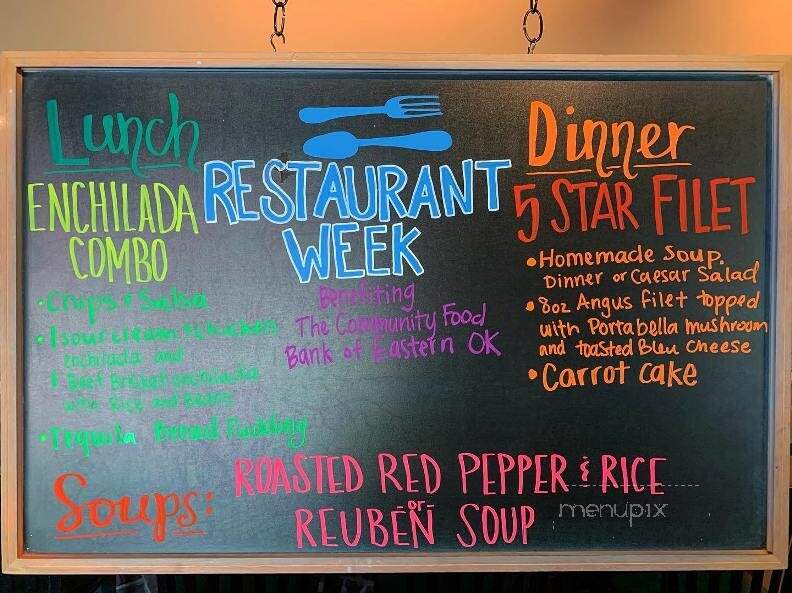 Lunch
ENCHILADA
COMBO
• Chips & Salsa
• 1 sour cream & chicken
enchilada and
1 Beef Brisket enchilada
with Rice and Beans
• Tequila Bread Pudding
RESTAURANT
WEEK
Benefiting
The Community Food
Bank of Eastern OK
Dinner
5 STAR FILET
• Homemade Soup.
Dinner or Caesar Salad
• 8oz Angus filet topped
with Portabella mushroom
and toasted Bleu Cheese
• Carrot cake
Soups:
ROASTED RED PEPPER & RICE
or
REUBEN SOUP
menupix